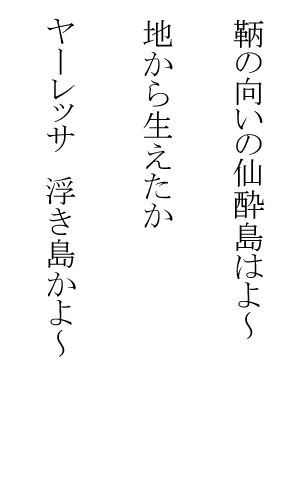 鞆の向いの仙酔島はよ～
地から生えたか
ヤーレッサ　浮き島かよ～